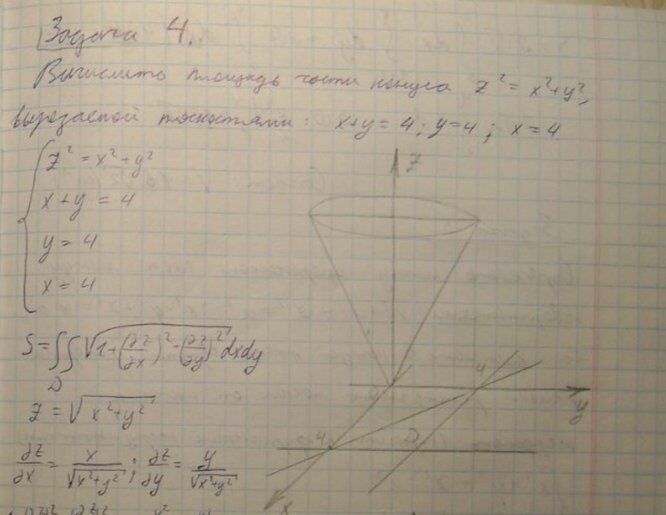 Задача 4.
Вычислить площадь части конуса z² = x²+y²,
вырезаемой плоскостями: x+y = 4; y=4; x = 4
z² = x²+y²
x+y = 4
y = 4
x = 4
S = ∬ √1+(∂z/∂x)²+(∂z/∂y)² dxdy
D
z = √x²+y²
∂z/∂x = x/√x²+y²; ∂z/∂y = y/√x²+y²
z
4
y
4
D
x